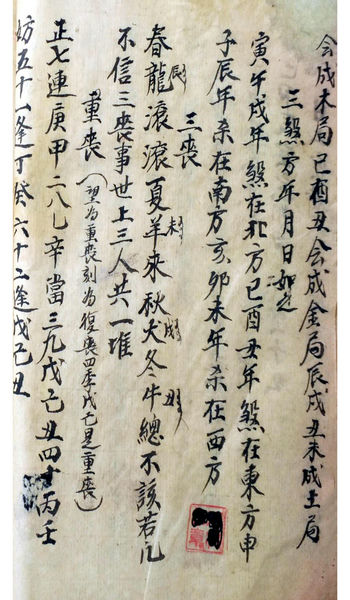 会成木局巳酉丑会成金局辰戌丑未成土局
三煞方年月日如之
寅午戌年煞在北方巳酉丑年煞在東方申
子辰年杀在南方亥卯未年杀在西方
三喪
春龍滚滚夏羊來秋犬冬牛總不該若凡
辰 未 戌 丑
不信三喪事世上三人共一堆
重喪（望為重喪刻為復喪四季戊己是重喪）
正七連庚甲二八乙辛當三九戊己丑四十丙壬
妨五十一逢丁癸六十二逢戊己丑